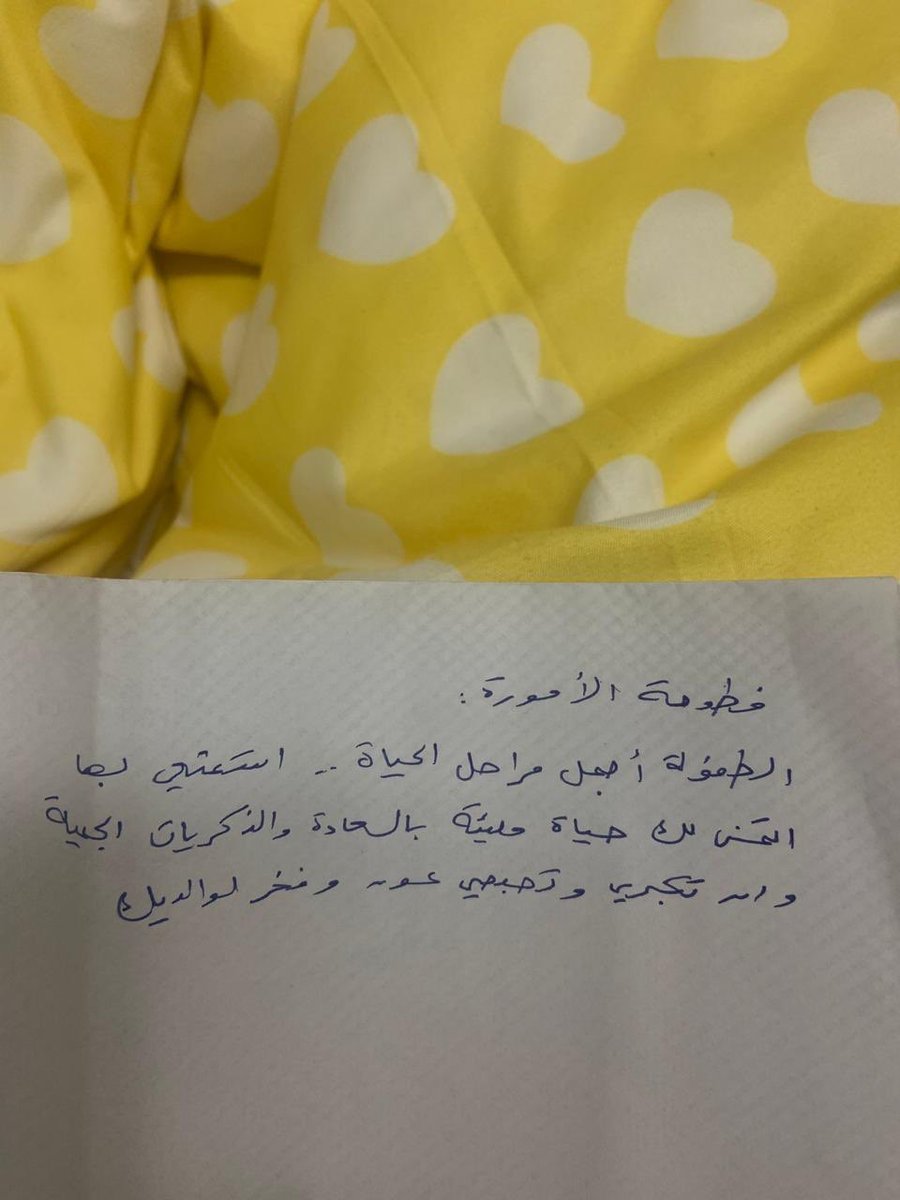 فطومة الأمورة :
الطفولة أجمل مراحل الحياة .. استمتعي بها
اتمنى لك حياة مليئة بالسعادة والذكريات الجميلة
وان تكبري وتصبحي عون وفخر لوالديك